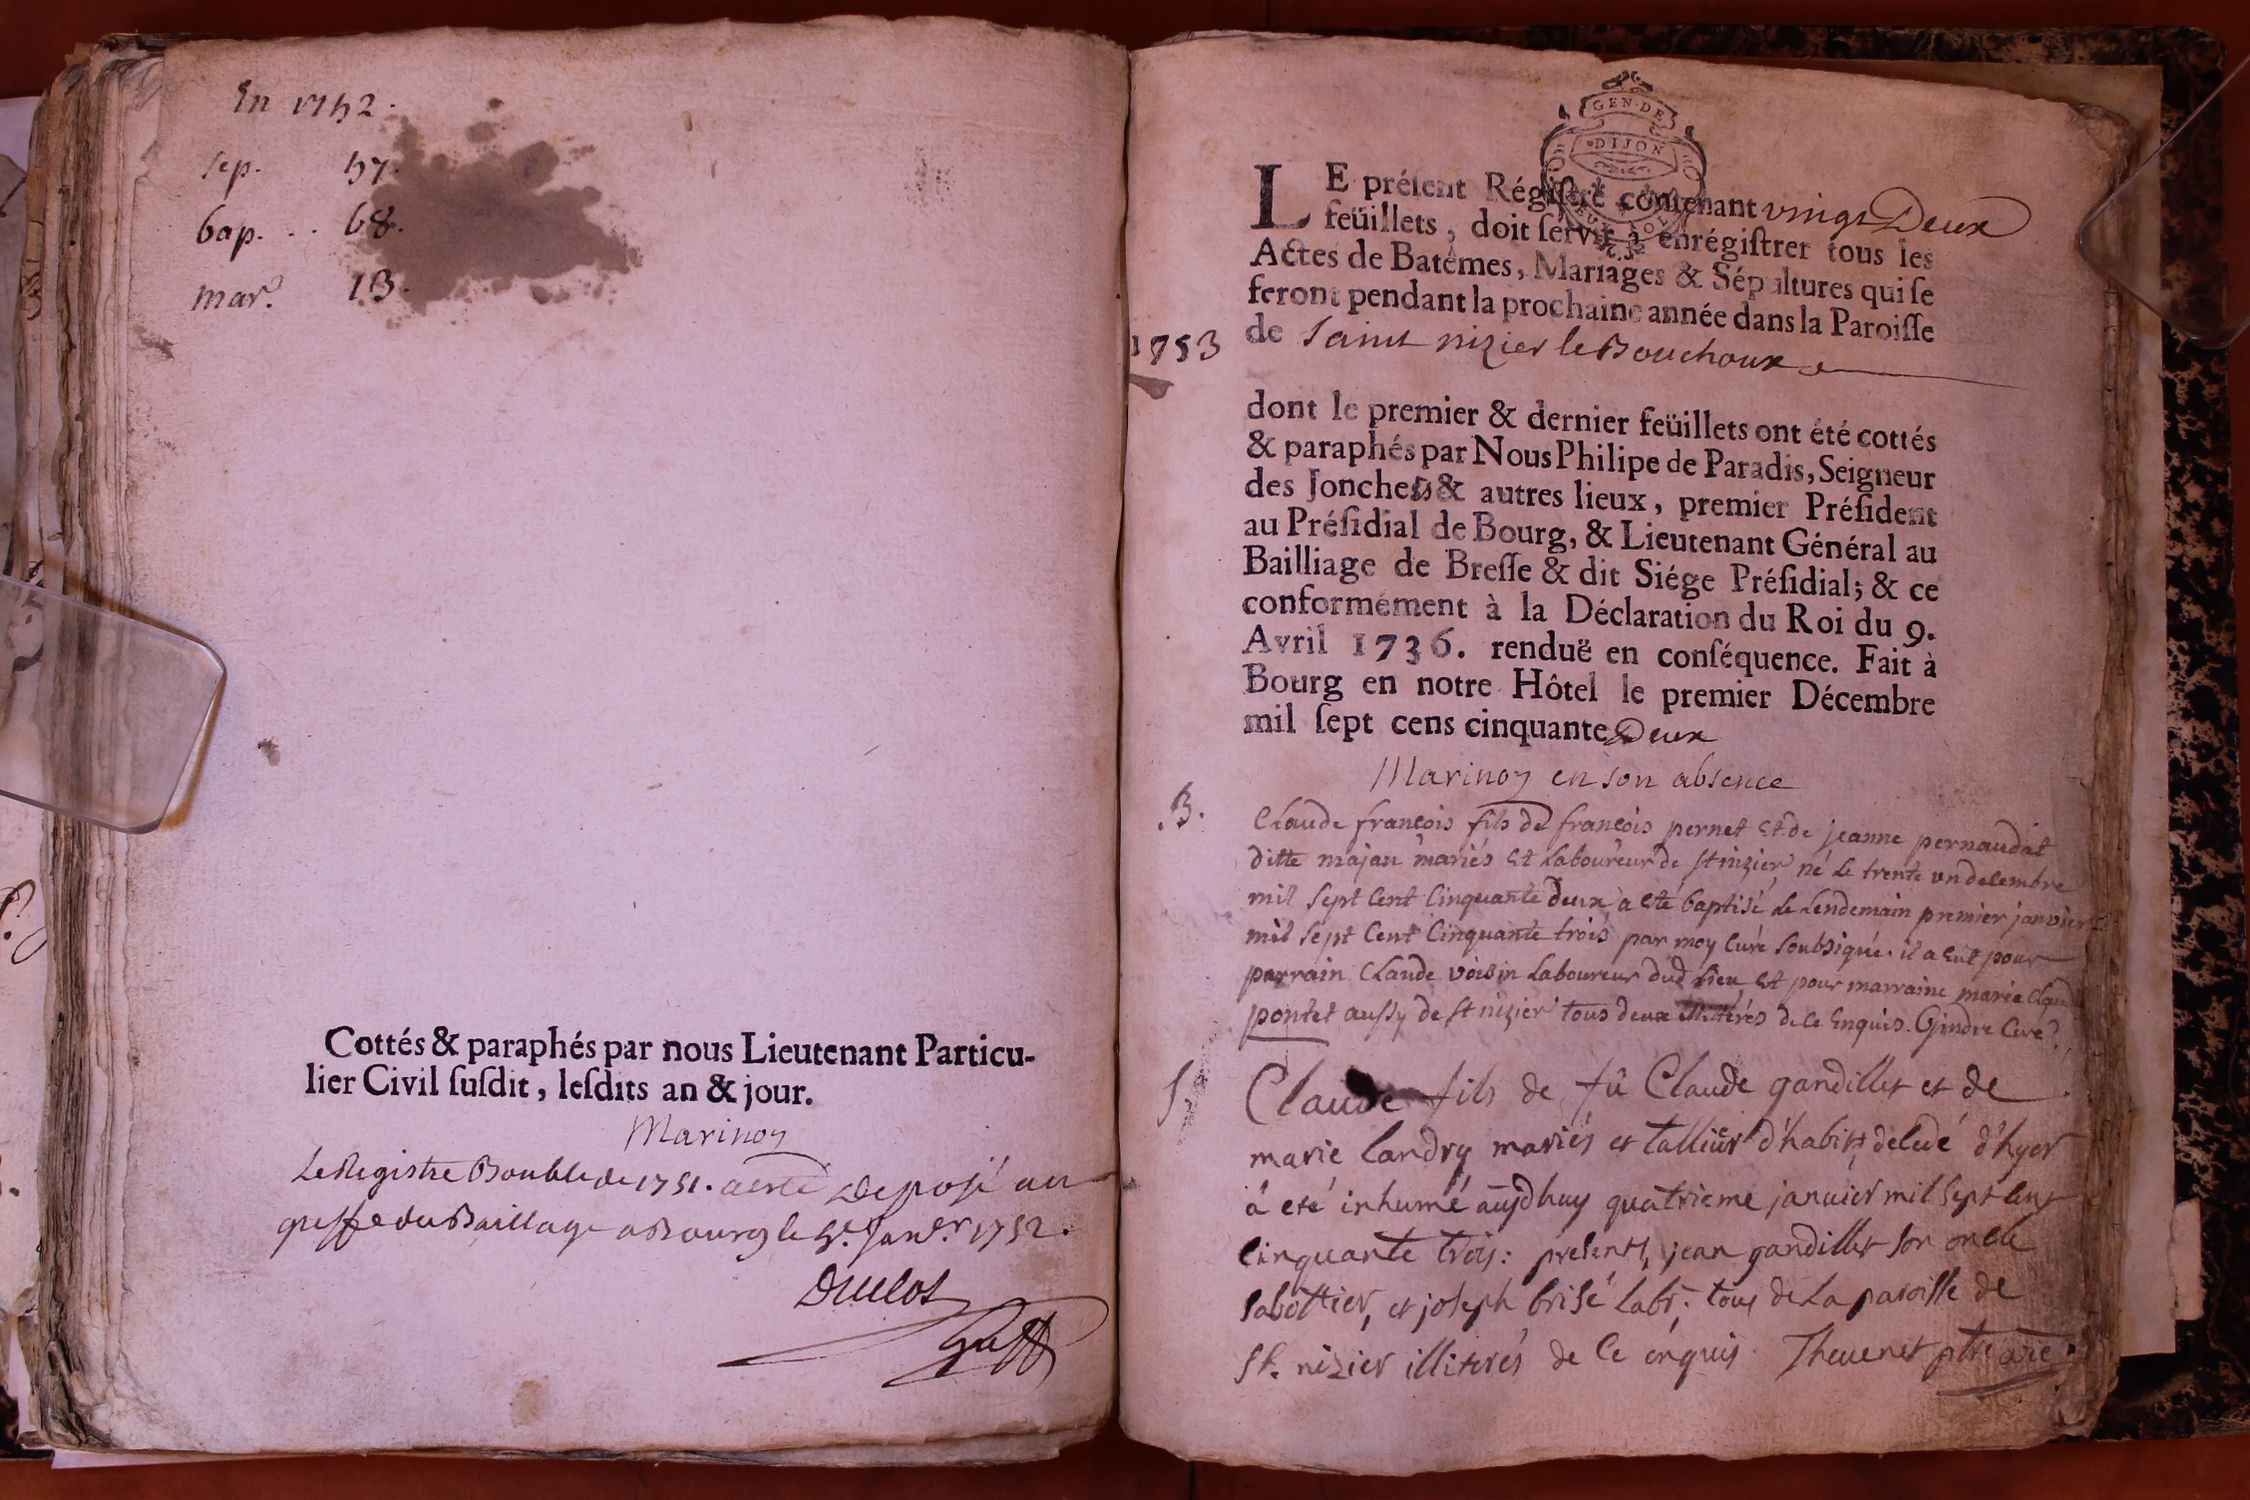 En 1752.
sep. 57.
bap. . . 68.
mar. 13.
Cottés & paraphés par nous Lieutenant Particu-
lier Civil ſuſdit, leſdits an & jour.
Marinon
Le Registre Double de 1751. a esté Deposé au
greffe du Baillage a Bourg le 5e. Janer. 1752.
Duclos
GEN. DE
DIJON
LE préſent Régiſtre contenant vingt Deux
feüillets, doit ſervir à enrégiſtrer tous les
Actes de Batêmes, Mariages & Sépultures qui ſe
feront pendant la prochaine année dans la Paroiſſe
1753
de Saint nizier le Bouchoux
dont le premier & dernier feüillets ont été cottés
& paraphés par Nous Philipe de Paradis, Seigneur
des Jonches & autres lieux, premier Préſident
au Préſidial de Bourg, & Lieutenant Général au
Bailliage de Breſſe & dit Siége Préſidial; & ce
conformément à la Déclaration du Roi du 9.
Avril 1736. renduë en conſéquence. Fait à
Bourg en notre Hôtel le premier Décembre
mil ſept cens cinquante Deux
Marinon en son absence
.B.
Claude françois fils de françois pernet et de jeanne pernaudat
ditte majan mariés et Laboureur de st nizier né le trente un decembre
mil sept cent cinquante deux a eté baptisé le Lendemain premier janvier
mil sept cent cinquante trois par moy curé soubsigné. il a eut pour
parrain Claude voisin Laboureur dud lieu et pour marraine marie
pontet aussy de st nizier tous deux illitérés de ce enquis. Gindre Curé
S.
Claude fils de fû Claude gandillet et de
marie Landry mariés et tallieur d'habits decedé d'hyer
à eté inhumé aujdhuy quatrieme janvier mil sept cent
cinquante trois: presents, jean gandillet son oncle
sabottier, et joseph brisé labr. tous de La paroisse de
St. nizier illiterés de ce enquis. Thevenet ptre